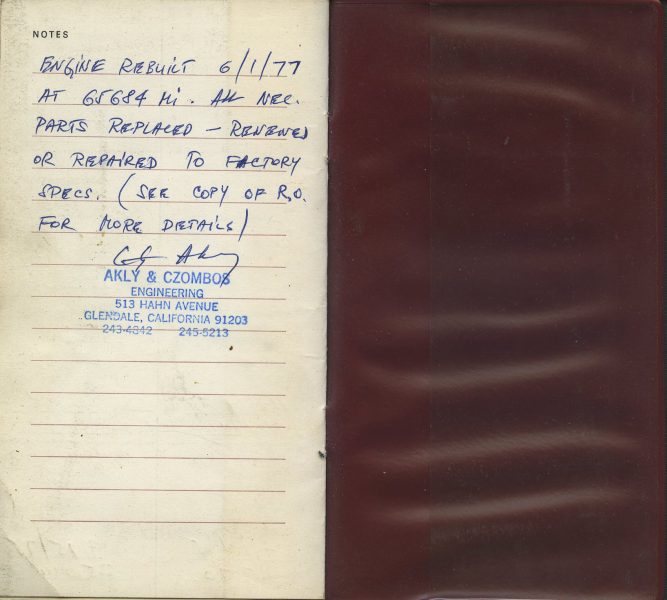 NOTES
ENGINE REBUILT 6/1/77
AT 65684 Mi. ALL NEC.
PARTS REPLACED – RENEWED
OR REPAIRED TO FACTORY
SPECS. (SEE COPY OF R.O.
FOR MORE DETAILS)
AKLY & CZOMBOS
ENGINEERING
513 HAHN AVENUE
GLENDALE, CALIFORNIA 91203
243-4842 245-5213